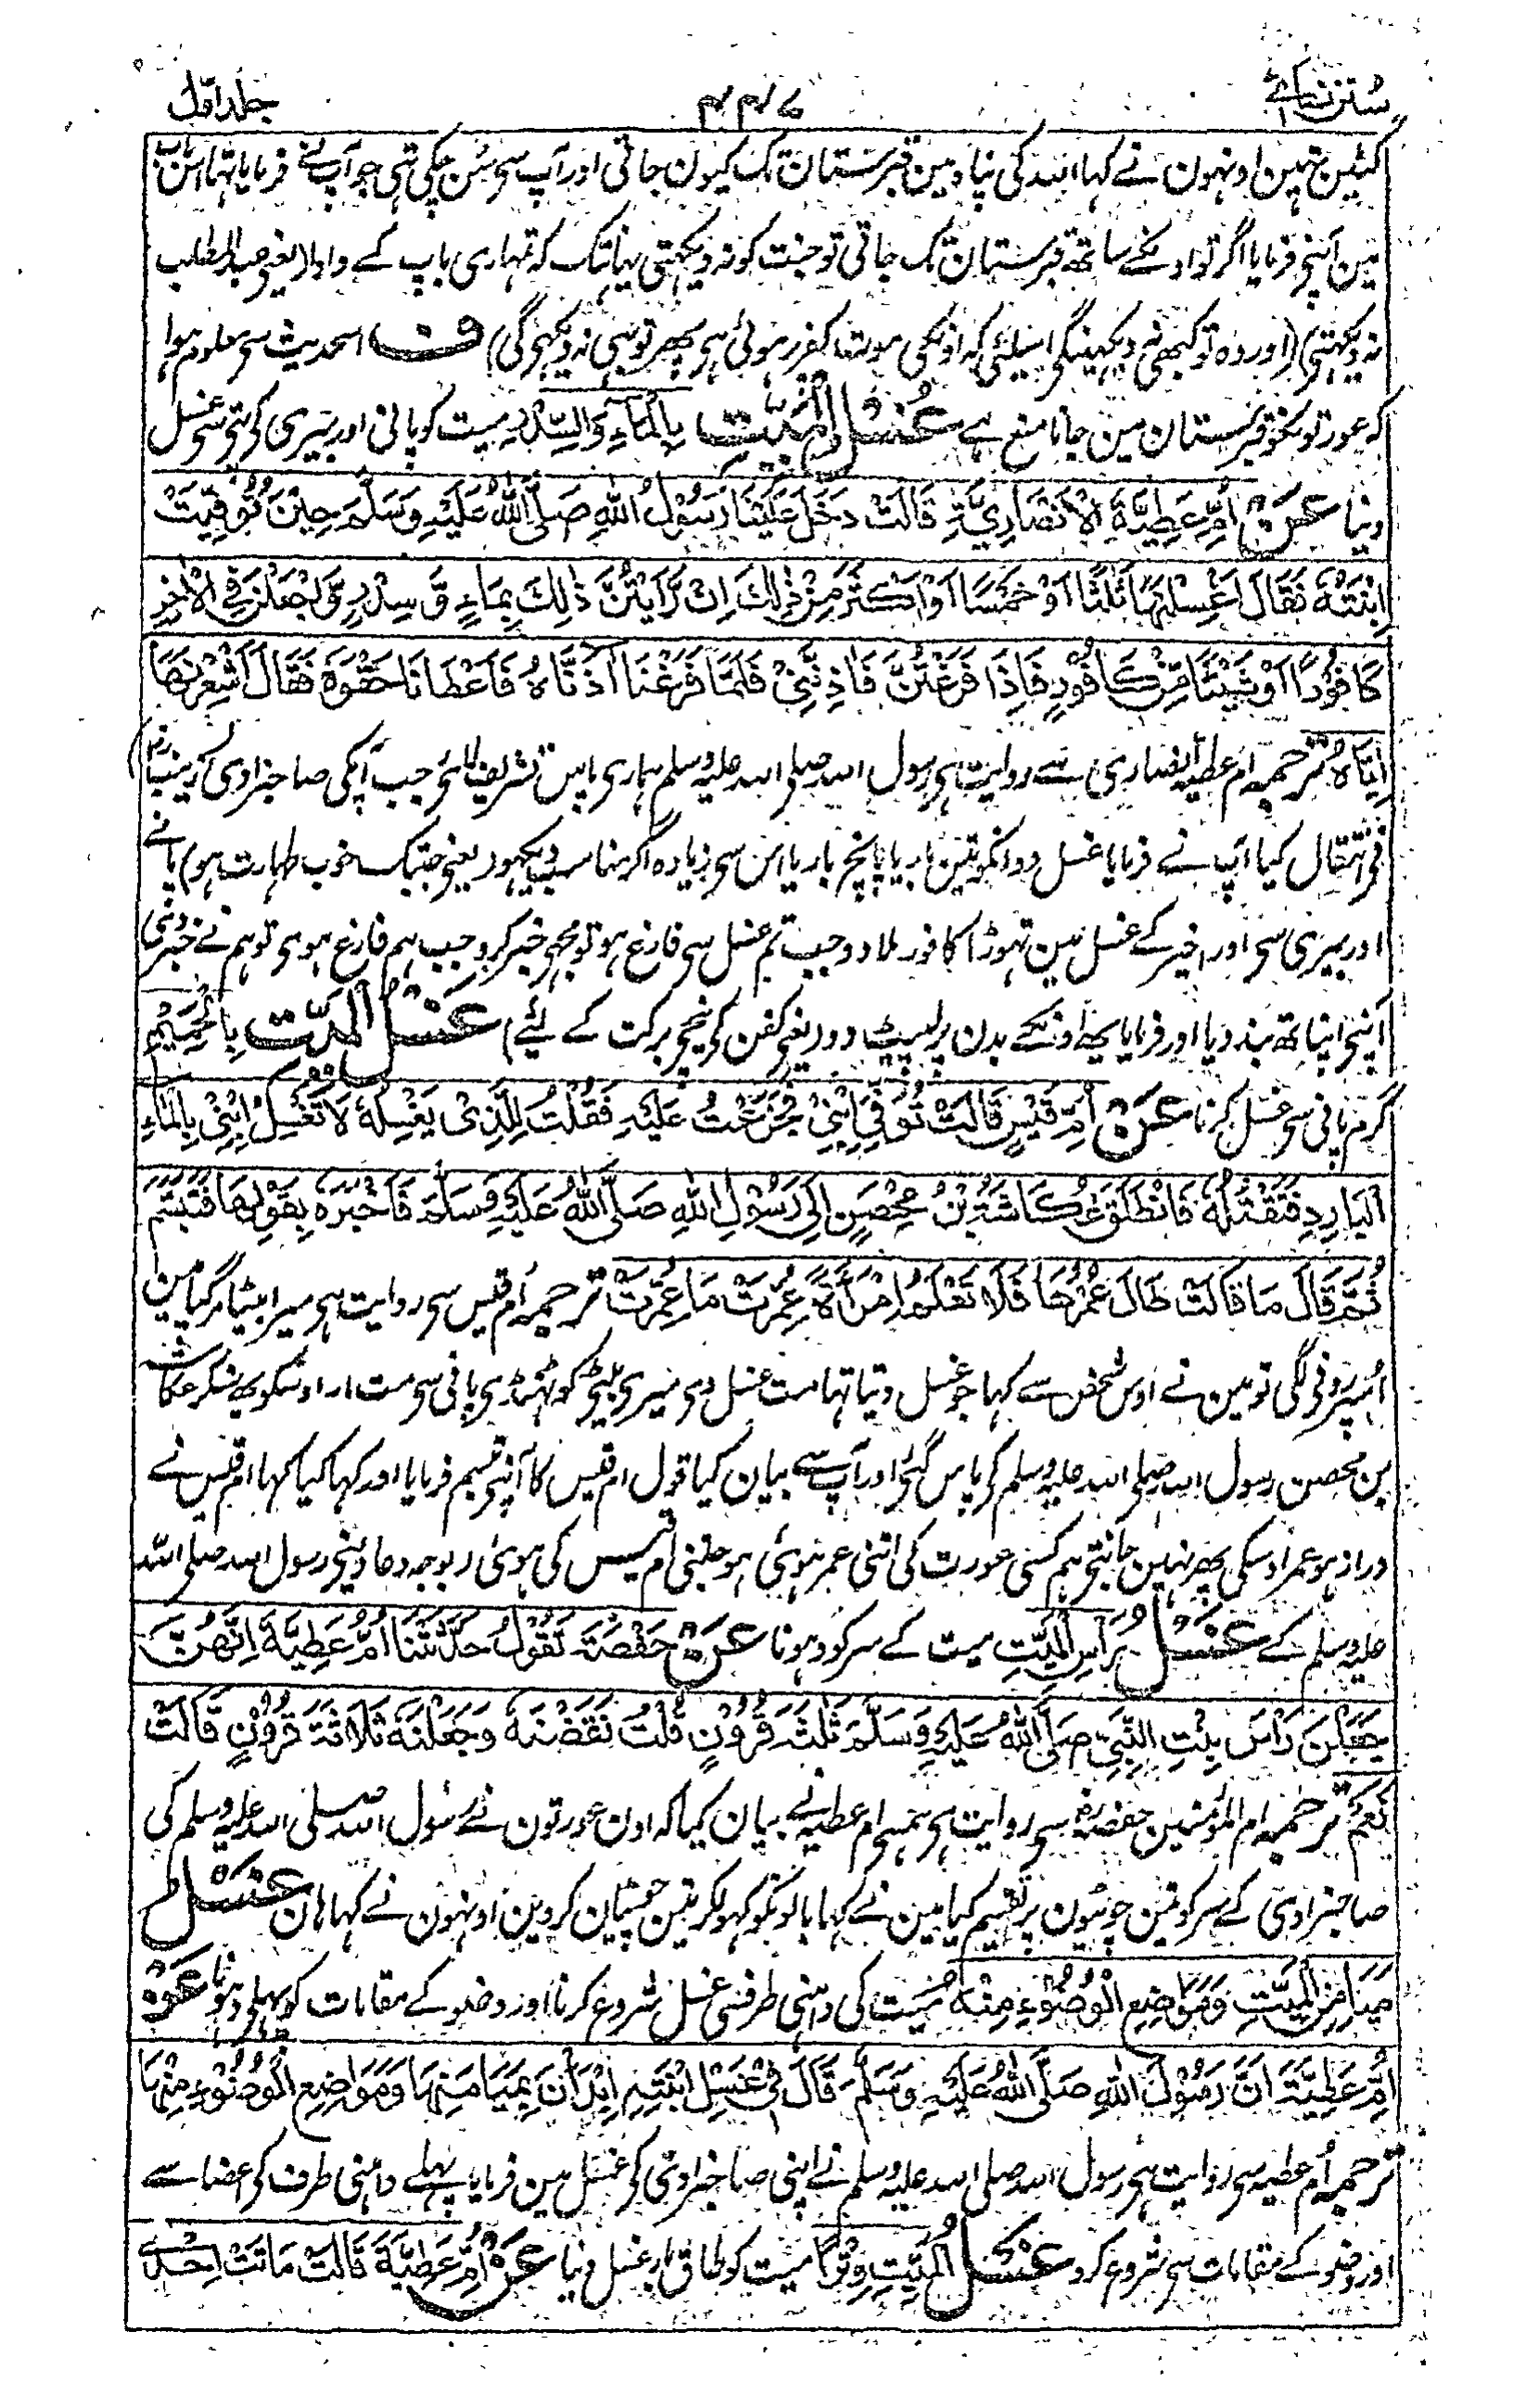 سنن نسائی ۴۴۷ جلد اول
گئین نہین اونہون نے کہا اللہ کی پناہ مین قبرستان تک کیون جاتی اور آپ سے سن چکی تہی جو آپ نے فرمایا تہا اس باب
مین آپنے فرمایا اگر تو اونکے ساتھ قبرستان تک جاتی تو جنت کو نہ دیکہتی یہانتک کہ تمہاری باپ کے دادا (یعنی عبدالمطلب
نہ دیکہتے) (اور وہ تو کبھی نہ دیکہینگے اسلئے کہ اونکی موت کفر پر ہوئی ہے پھر تو بہی نہ دیکہیگی) ف اسحدیث سے معلوم ہوا
کہ عورتونکو قبرستان مین جانا منع ہے غُسْلُ الْمَيِّتِ بِالْمَاءِ وَالسِّدْرِ میت کو پانی اور بیری کی پتے سے غسل
دینا عَنْ أُمِّ عَطِيَّةَ الْأَنْصَارِيَّةِ قَالَتْ دَخَلَ عَلَيْنَا رَسُوْلُ اللهِ صَلَّى اللهُ عَلَيْهِ وَسَلَّمَ حِيْنَ تُوُفِّيَتْ
اِبْنَتُهُ فَقَالَ اغْسِلْنَهَا ثَلٰثًا اَوْ خَمْسًا اَوْ اَكْثَرَ مِنْ ذٰلِكَ اِنْ رَّاَيْتُنَّ ذٰلِكَ بِمَاءٍ وَّ سِدْرٍ وَّاجْعَلْنَ فِي الْاٰخِرِ
كَافُوْرًا اَوْ شَيْئًا مِّنْ كَافُوْرٍ فَاِذَا فَرَغْتُنَّ فَاٰذِنَّنِيْ فَلَمَّا فَرَغْنَا اٰذَنَّاهُ فَاَعْطَانَا حَقْوَهُ فَقَالَ اَشْعِرْنَهَا
اِيَّاهُ ترجمہ ام عطیہ انصاری سے روایت ہے رسول اللہ صلی اللہ علیہ وسلم ہماری پاس تشریف لائے جب آپکی صاحبزادی (زینبؓ)
نے انتقال کیا آپ نے فرمایا غسل دو انکو تین بار یا پانچ بار یا اس سے زیادہ اگر مناسب دیکہو (یعنی جبتک خوب طہارت ہو) پانے
اور بیری سے اور اخیر کے غسل مین تہوڑا کافور ملا دو جب تم غسل سے فارغ ہو تو مجہے خبر کرو جب ہم فارغ ہوے تو ہم نے خبر دی
آپنے اپنا تہ بند دیا اور فرمایا یہ اونکے بدن پر لپیٹ دو (یعنی کفن کے نیچے برکت کے لئے) غَسْلُ الْمَيِّتِ بِالْحَمِيْمِ
گرم پانی سے غسل کرنا عَنْ اُمِّ قَيْسٍ قَالَتْ تُوُفِّيَ ابْنِيْ فَجَزِعْتُ عَلَيْهِ فَقُلْتُ لِلَّذِيْ يَغْسِلُهُ لَا تَغْسِلْ ابْنِيْ بِالْمَاءِ
الْبَارِدِ فَتَقْتُلَهُ فَانْطَلَقَ عُكَّاشَةُ بْنُ مِحْصَنٍ اِلٰى رَسُوْلِ اللهِ صَلَّى اللهُ عَلَيْهِ وَسَلَّمَ فَاَخْبَرَهُ بِقَوْلِهَا فَتَبَسَّمَ
ثُمَّ قَالَ مَا قَالَتْ طَالَ عُمْرُهَا فَلَا نَعْلَمُ امْرَاَةً عُمِّرَتْ مَا عُمِّرَتْ ترجمہ اُم قیس سے روایت ہے میرا بیٹا مر گیا مین
اُسپر رونی لگی تو مین نے اوس شخص سے کہا جو غسل دیتا تہا مت غسل دی میری بیٹے کو ٹہنڈی پانی سے مت مار اوسکو یہ سنکر عکاشہ
بن محصن رسول اللہ صلی اللہ علیہ وسلم کے پاس گئے اور آپ سے بیان کیا قول ام قیس کا آپنے تبسم فرمایا اور کہا کیا کہا ام قیس نے
دراز ہو عمر اوسکی پھر نہین جانتے ہم کسی عورت کی اتنی عمر ہوئی ہو جتنی ام قیس کی ہوئی (بوجہ دعا دینے رسول اللہ صلی اللہ
علیہ وسلم کے غَسْلُ رَأْسِ الْمَيِّتِ میت کے سر کو دہونا عَنْ حَفْصَةَ تَقُوْلُ حَدَّثَتْنَا اُمُّ عَطِيَّةَ اِنَّهُنَّ
جَعَلْنَ رَاْسَ بِنْتِ النَّبِيِّ صَلَّى اللهُ عَلَيْهِ وَسَلَّمَ ثَلٰثَةَ قُرُوْنٍ قُلْتُ نَقَضْنَهُ وَجَعَلْنَهُ ثَلَاثَةَ قُرُوْنٍ قَالَتْ
نَعَمْ ترجمہ ام المومنین حفصہؓ سے روایت ہے ہمسے ام عطیہ نے بیان کیا کہ اون عورتون نے رسول اللہ صلی اللہ علیہ وسلم کی
صاحبزادی کے سر کو تین چوٹیون پر تقسیم کیا مین نے کہا بالونکو کہولکر تین چوٹیان کر دین اونہون نے کہا ہان غَسْلُ
مَيَامِنِ الْمَيِّتِ وَمَوَاضِعِ الْوُضُوْءِ مِنْهُ میت کی داہنی طرفسے غسل شروع کرنا اور وضو کے مقامات کو پہلے دہونا عَنْ
اُمِّ عَطِيَّةَ اَنَّ رَسُوْلَ اللهِ صَلَّى اللهُ عَلَيْهِ وَسَلَّمَ قَالَ فِيْ غَسْلِ ابْنَتِهِ ابْدَاْنَ بِمَيَامِنِهَا وَمَوَاضِعِ الْوُضُوْءِ مِنْهَا
ترجمہ اُم عطیہ سے روایت ہے رسول اللہ صلی اللہ علیہ وسلم نے اپنی صاحبزادی کے غسل مین فرمایا پہلے داہنی طرف کے اعضا سے
اور وضو کے مقامات سے شروع کرو غَسْلُ الْمَيِّتِ وِتْرًا میت کو طاق بار غسل دینا عَنْ اُمِّ عَطِيَّةَ قَالَتْ مَاتَتْ اِحْدٰى